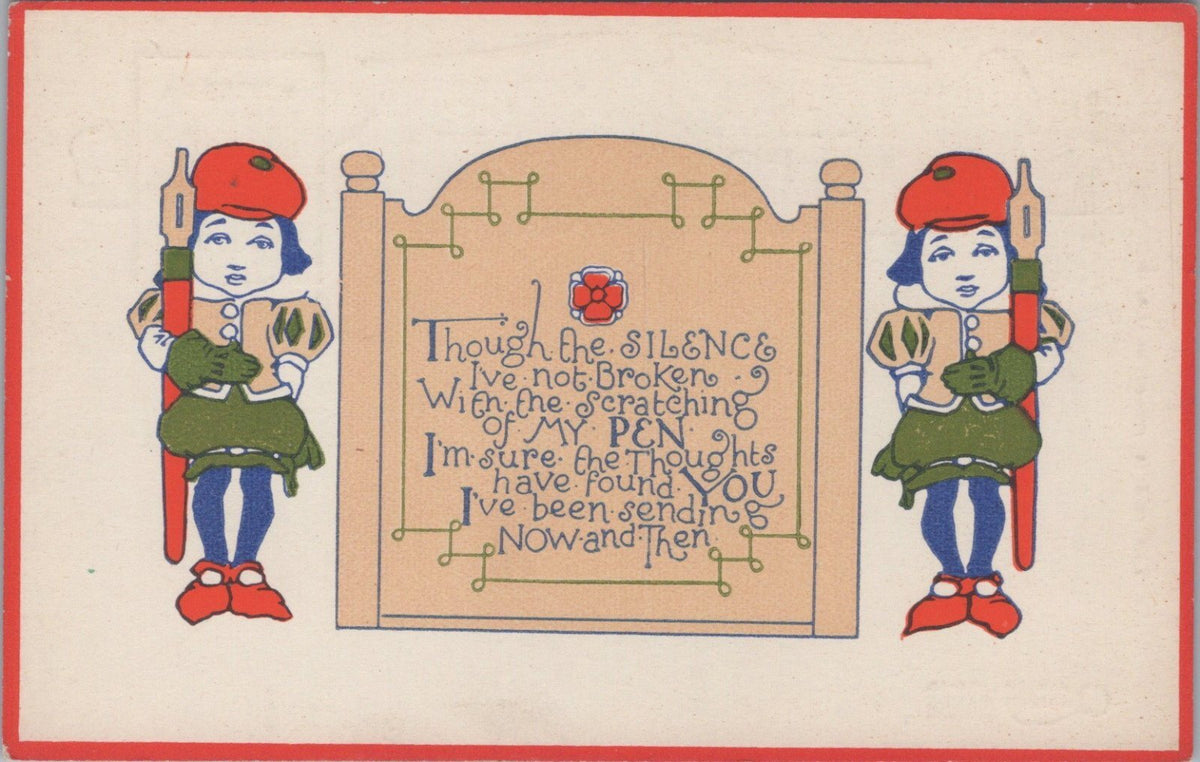 Though the SILENCE
I've not Broken
With the Scratching
of MY PEN
I'm sure the Thoughts
have found YOU
I've been sending
NOW and Then